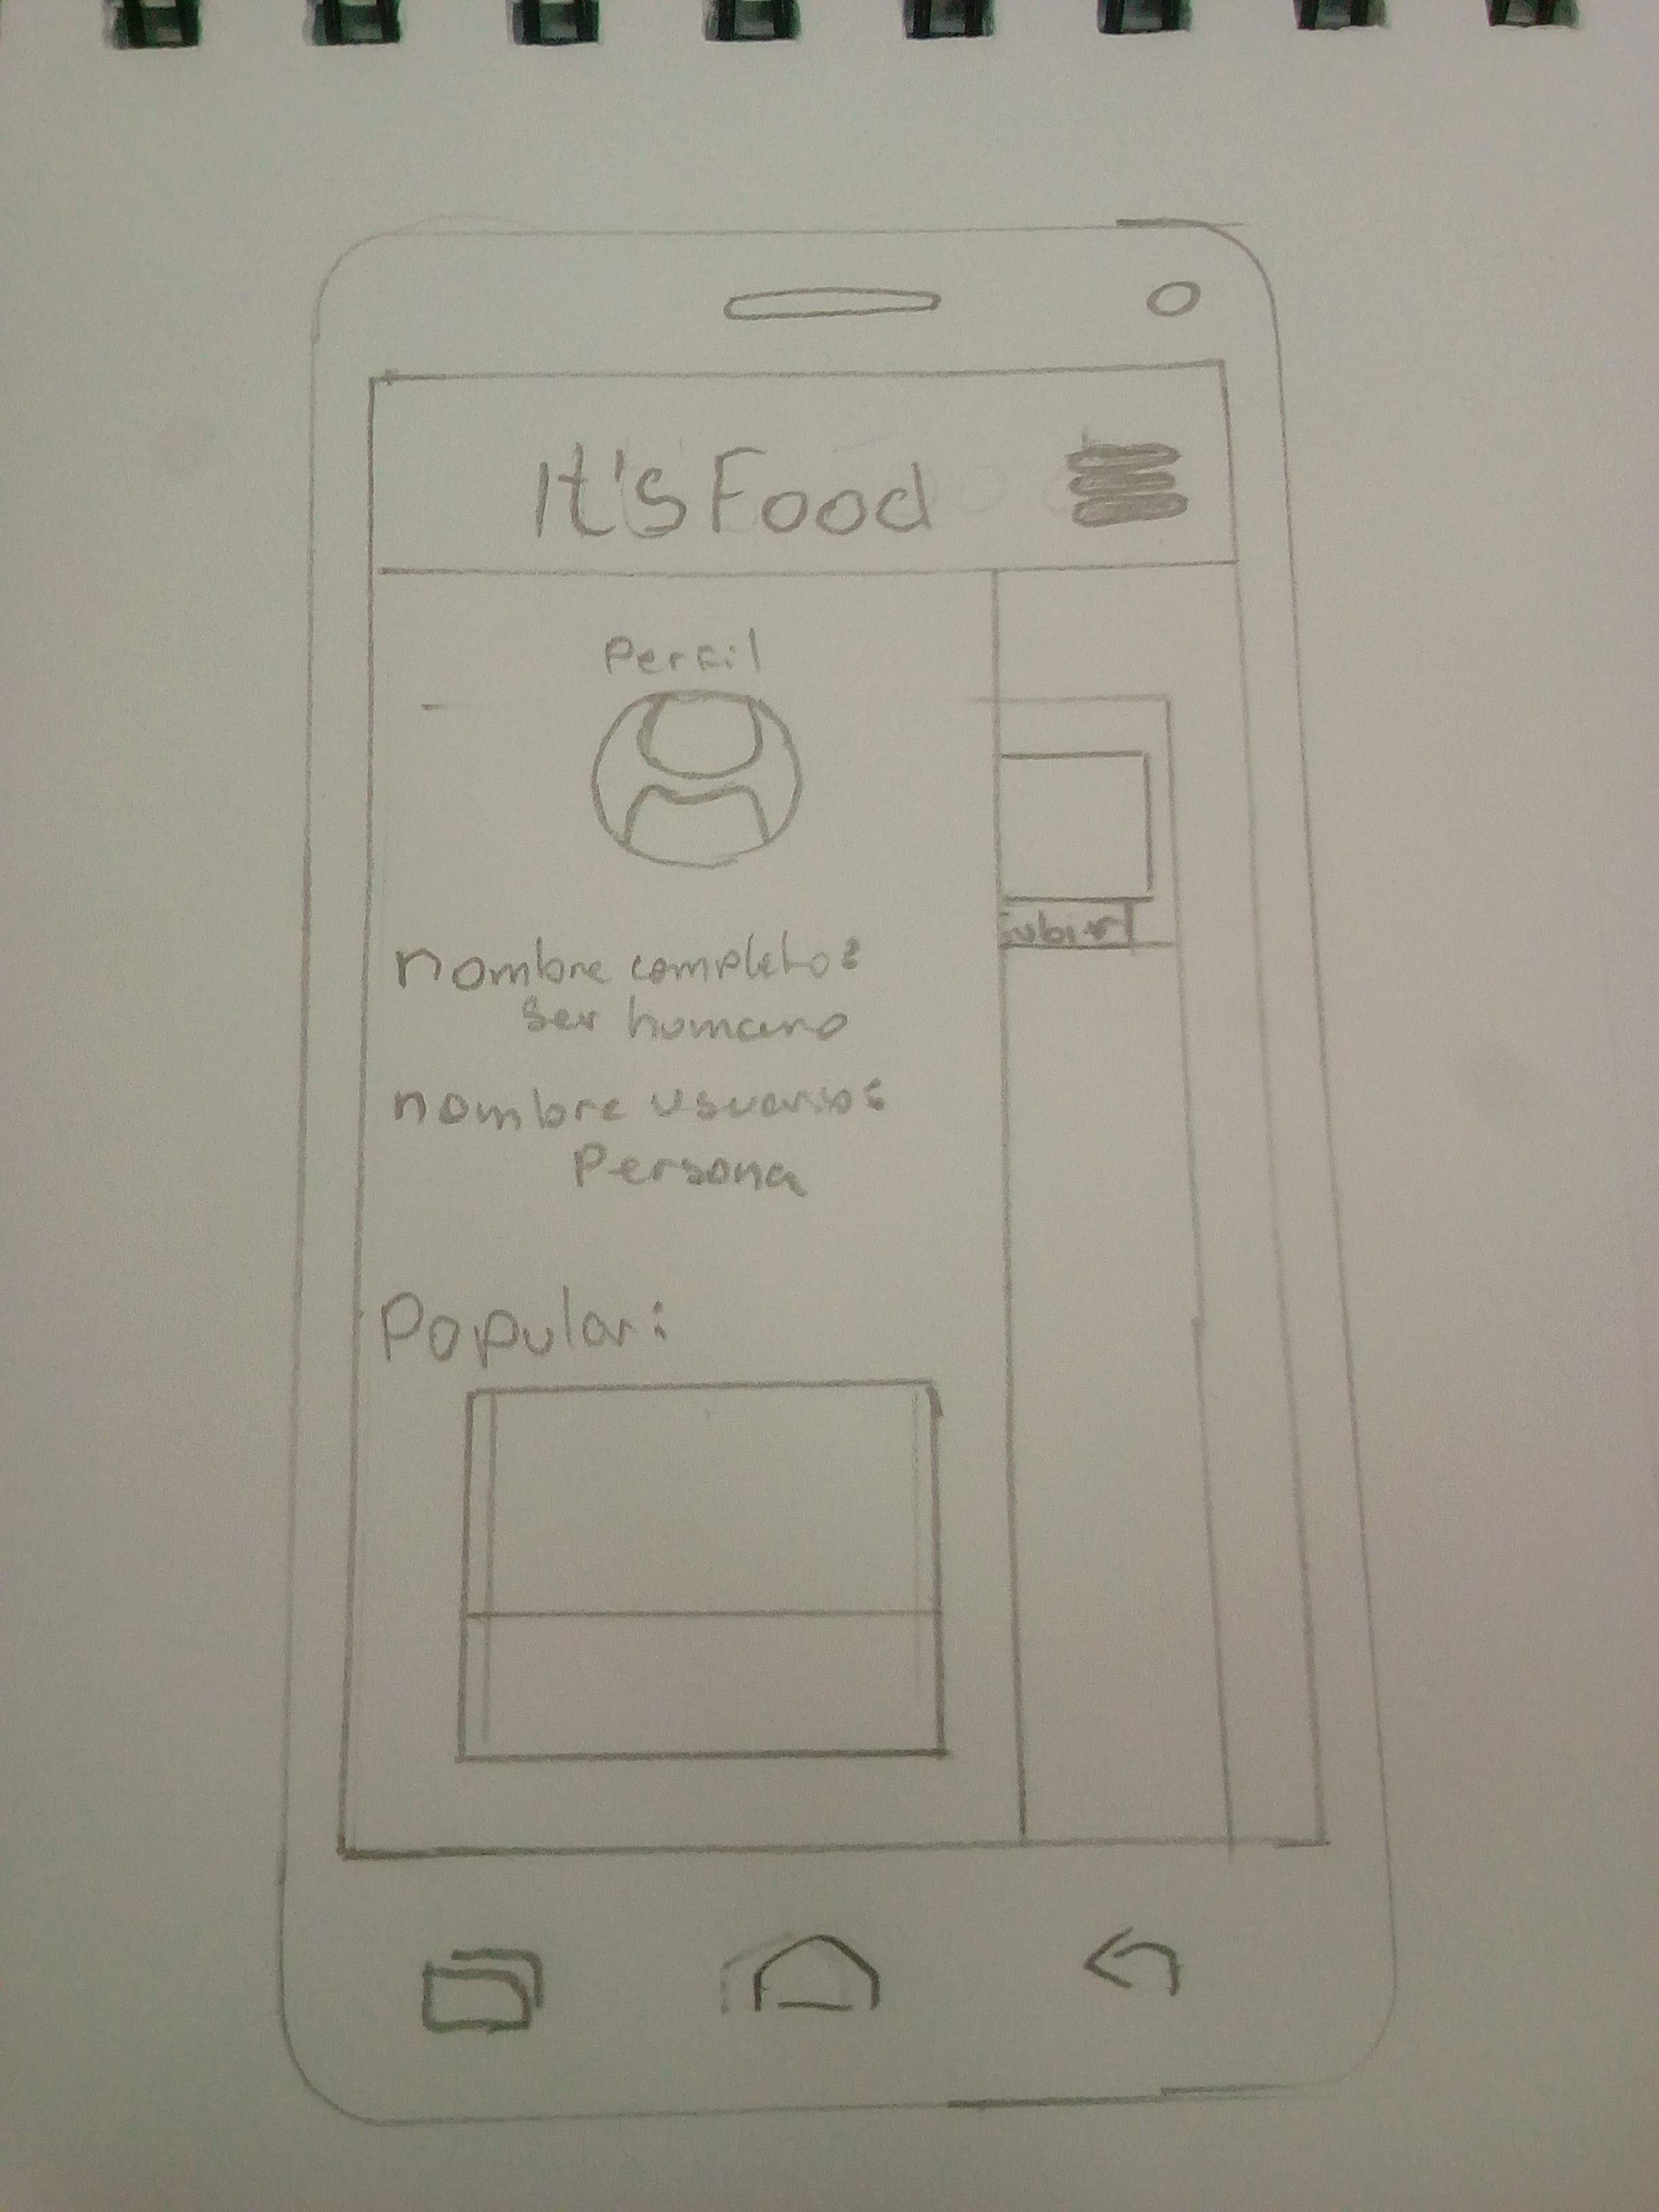 It's Food
Perfil
Subir
nombre completo:
ser humano
nombre usuario:
Persona
Popular: